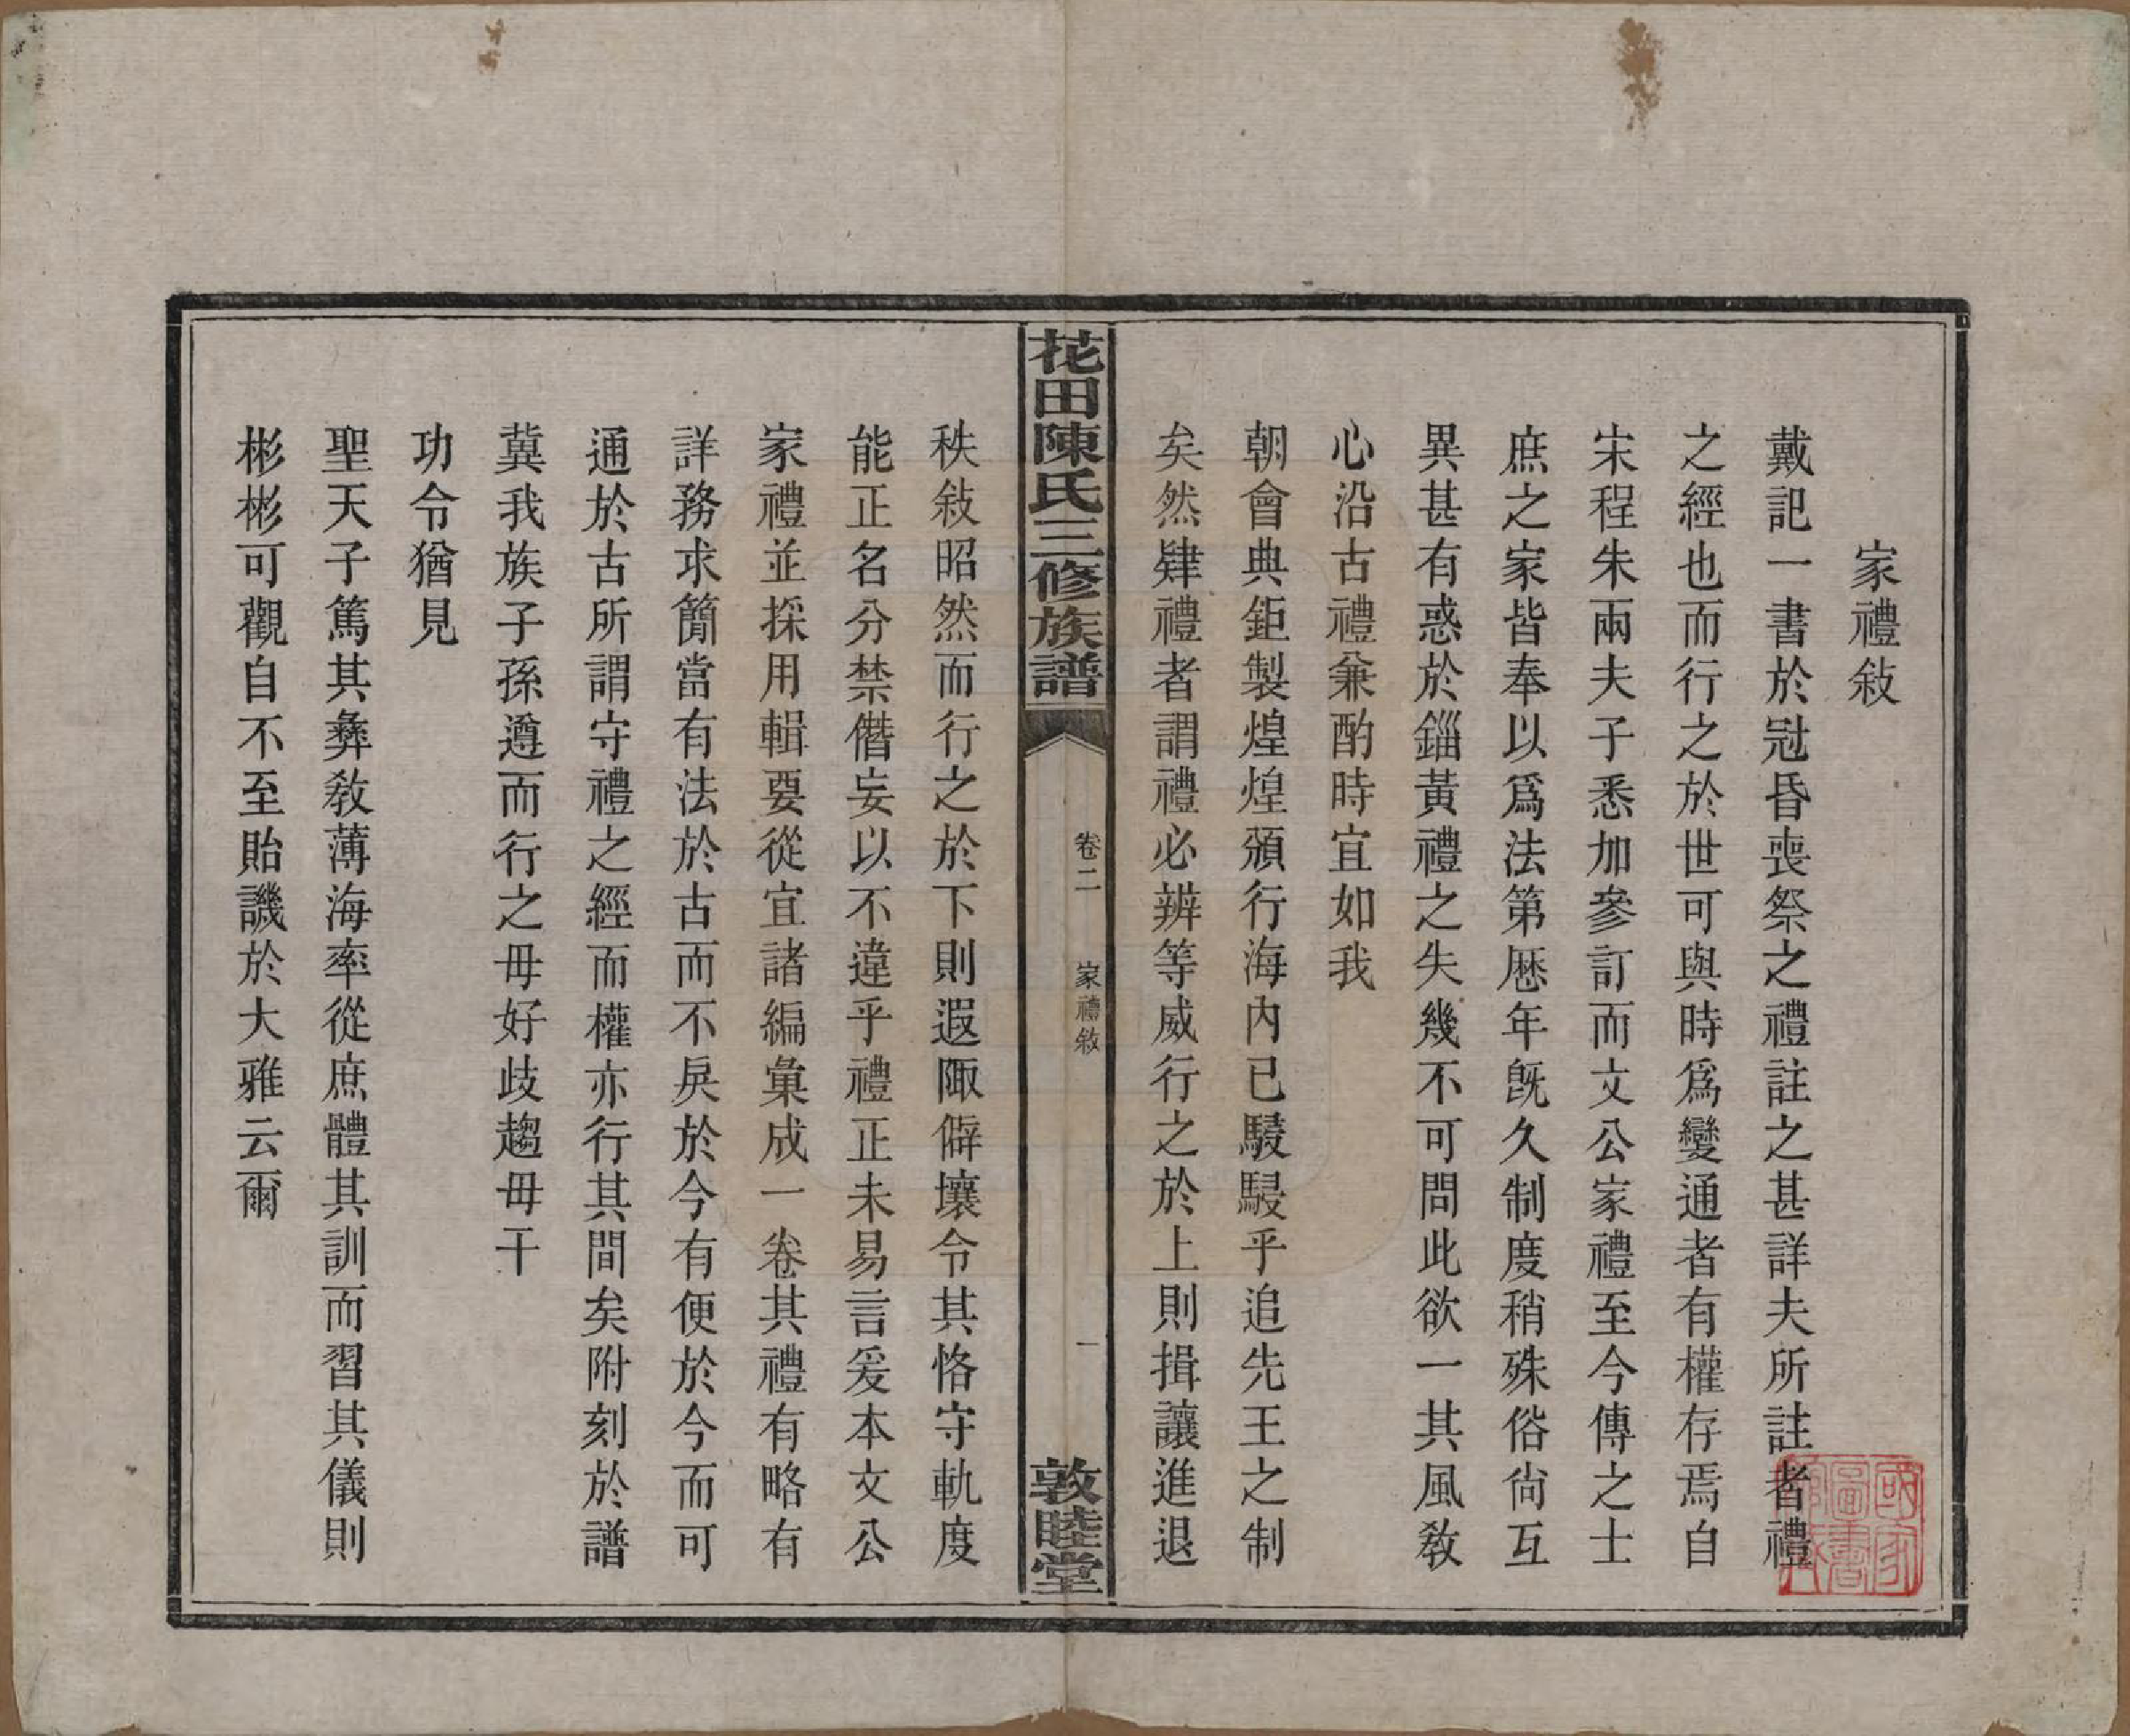 家禮敍
戴記一書於冠昏喪祭之禮註之甚詳夫所註者禮
之經也而行之於世可與時爲變通者有權存焉自
宋程朱兩夫子悉加參訂而文公家禮至今傳之士
庶之家皆奉以爲法第歷年旣久制度稍殊俗尙互
異甚有惑於錙黃禮之失幾不可問此欲一其風敎
心沿古禮兼酌時宜如我
朝會典鉅製煌煌頒行海內已駸駸乎追先王之制
矣然肄禮者謂禮必辨等威行之於上則揖讓進退
花田陳氏三修族譜
卷二
家禮敍
一
敦睦堂
秩敍昭然而行之於下則遐陬僻壤令其恪守軌度
能正名分禁僭妄以不違乎禮正未易言爰本文公
家禮並採用輯要從宜諸編彙成一卷其禮有略有
詳務求簡當有法於古而不戾於今有便於今而可
通於古所謂守禮之經而權亦行其間矣附刻於譜
冀我族子孫遵而行之毋好歧趨毋干
功令猶見
聖天子篤其彝敎薄海率從庶體其訓而習其儀則
彬彬可觀自不至貽譏於大雅云爾